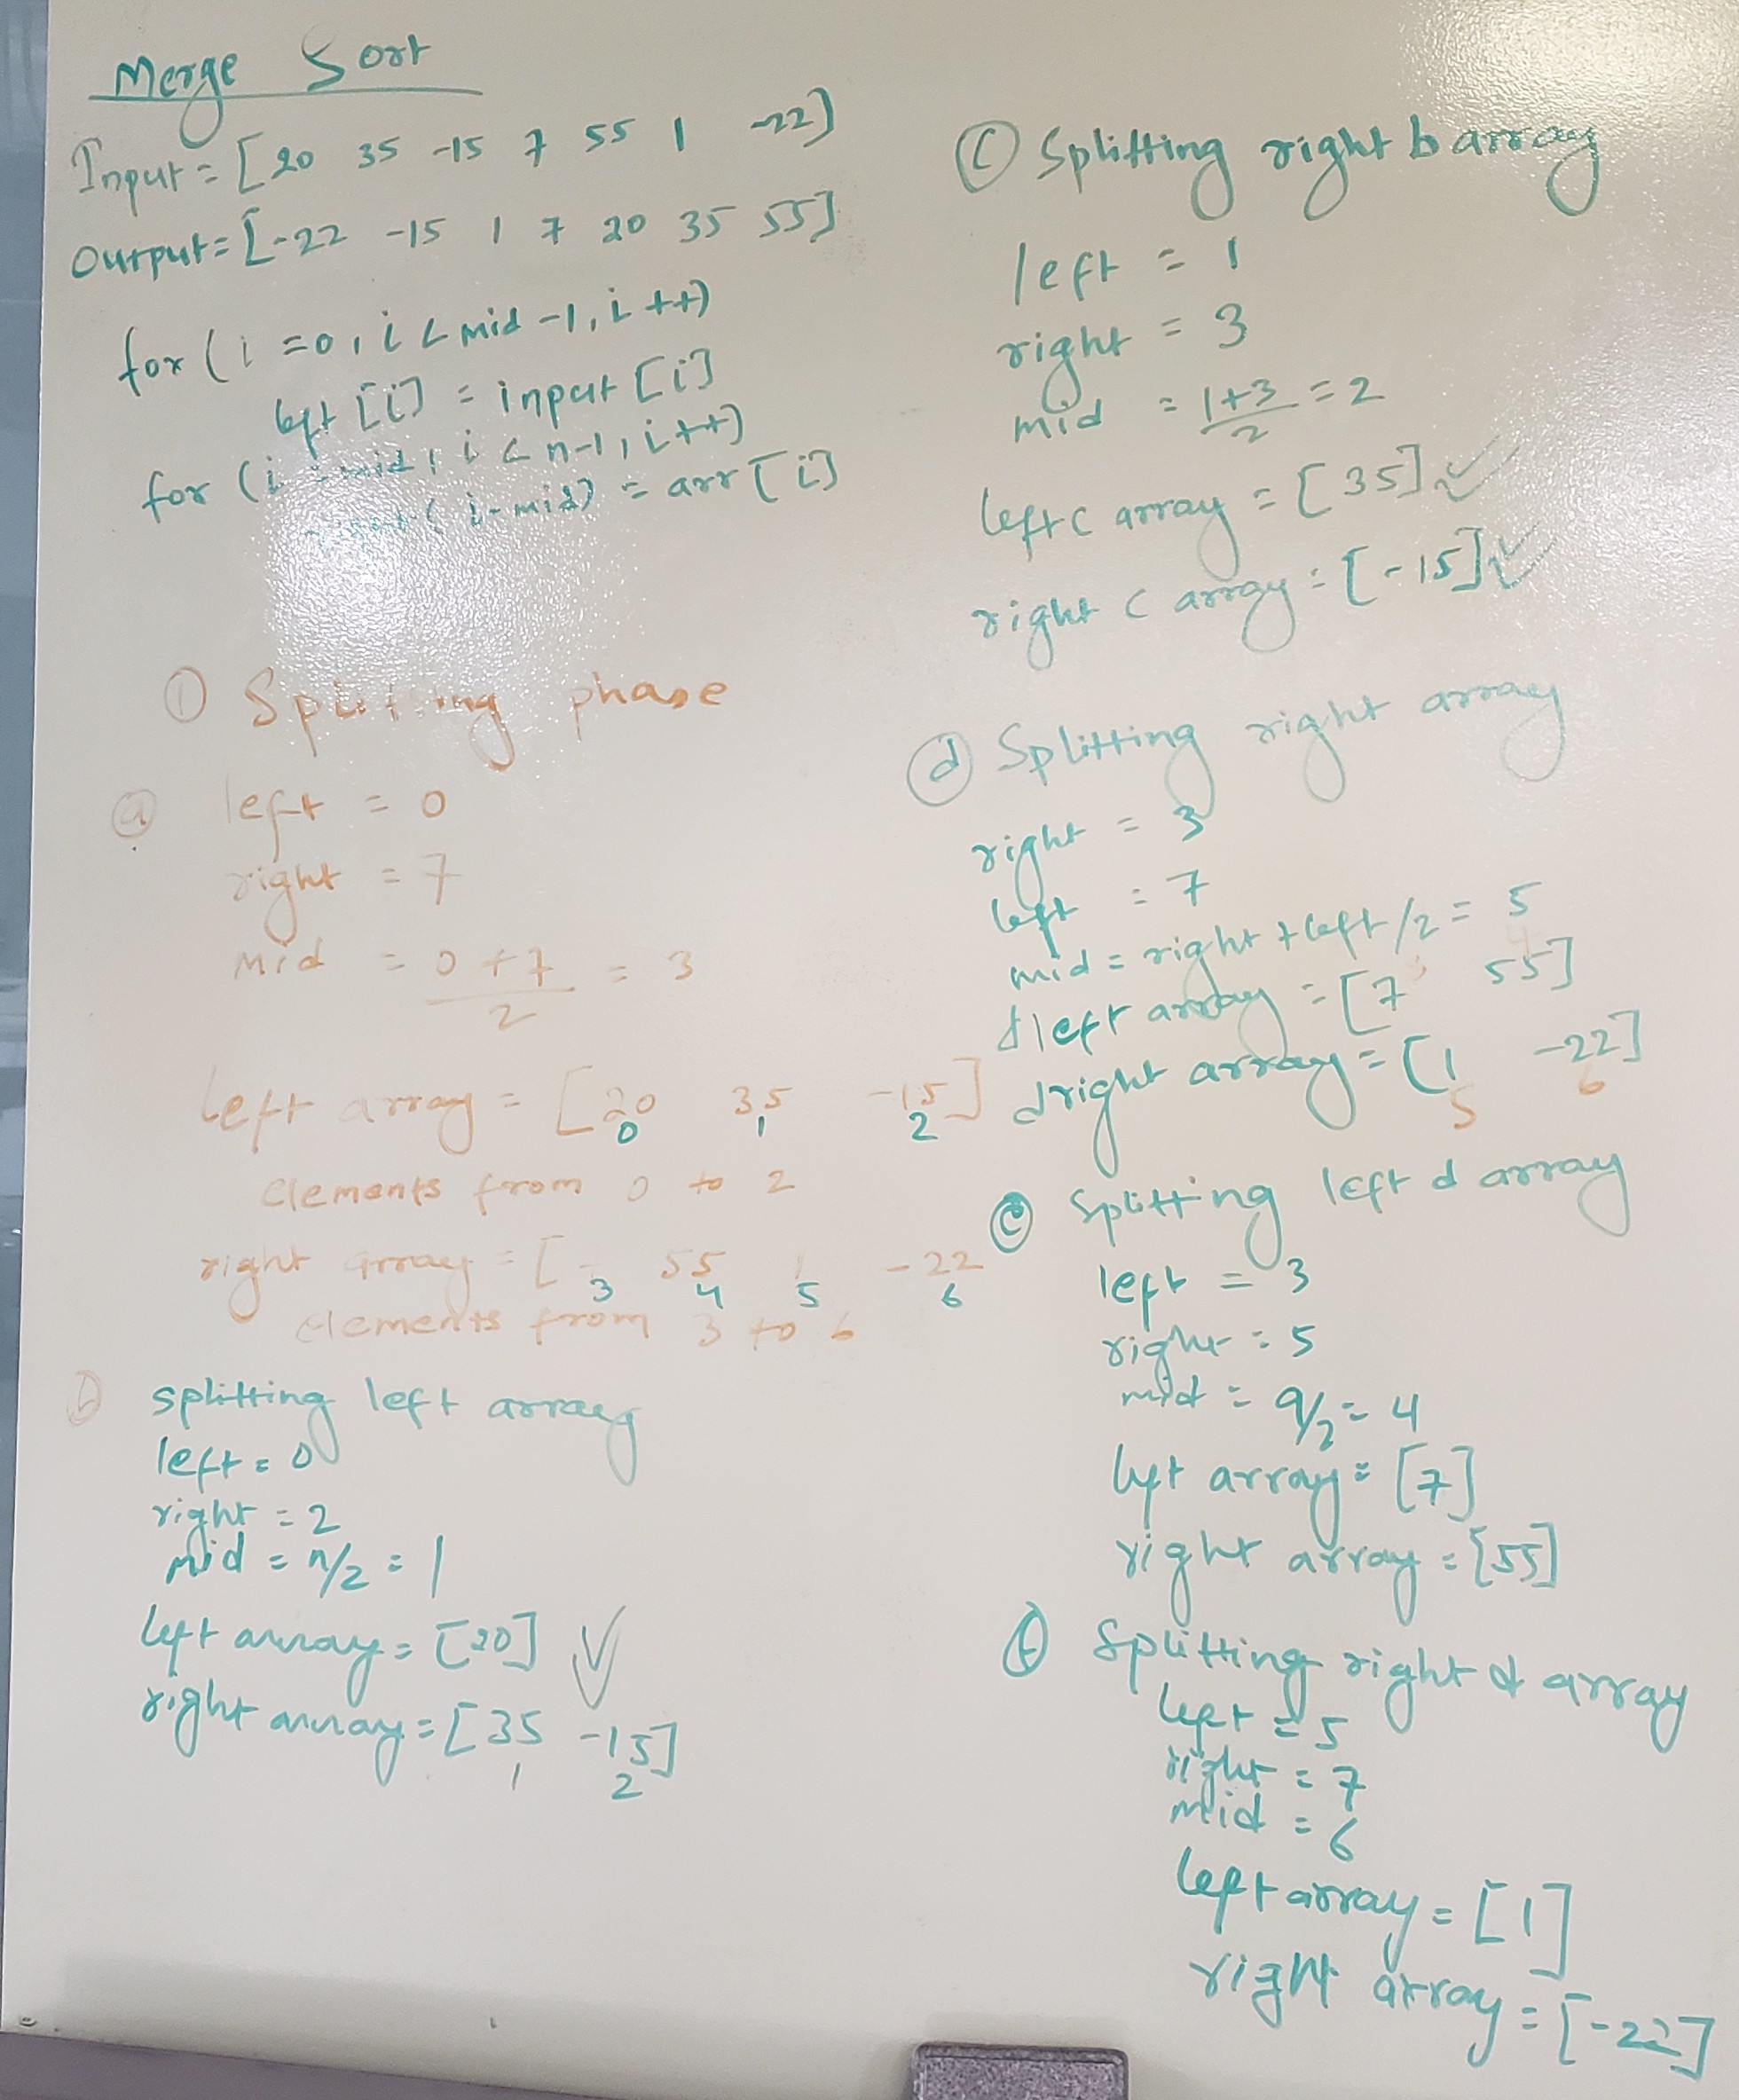 Merge Sort
Input = [20 35 -15 7 55 1 -22]
Output = [-22 -15 1 7 20 35 55]
for (i =0, i < mid -1, i ++)
left [i] = input [i]
for (i = mid, i < n-1, i++)
right (i-mid) = arr [i]
① Splitting phase
ⓐ left = 0
right = 7
Mid = 0 + 7 / 2 = 3
left array = [20 35 -15]
0 1 2
elements from 0 to 2
right array = [ 55 1 -22
3 4 5 6
elements from 3 to 6
ⓑ splitting left array
left = 0
right = 2
mid = n/2 = 1
left array = [20] ✓
right array = [35 -15]
1 2
ⓒ Splitting right b array
left = 1
right = 3
mid = 1+3 / 2 = 2
left c array = [35] ✓
right c array = [-15] ✓
ⓓ Splitting right array
right = 3
left = 7
mid = right + left /2 = 5
dleft array = [7 55]
dright array = [1 -22]
5 6
ⓔ Splitting left d array
left = 3
right = 5
mid = 9/2 = 4
left array = [7]
right array = [55]
ⓕ Splitting right d array
left = 5
right = 7
mid = 6
left array = [1]
right array = [-22]